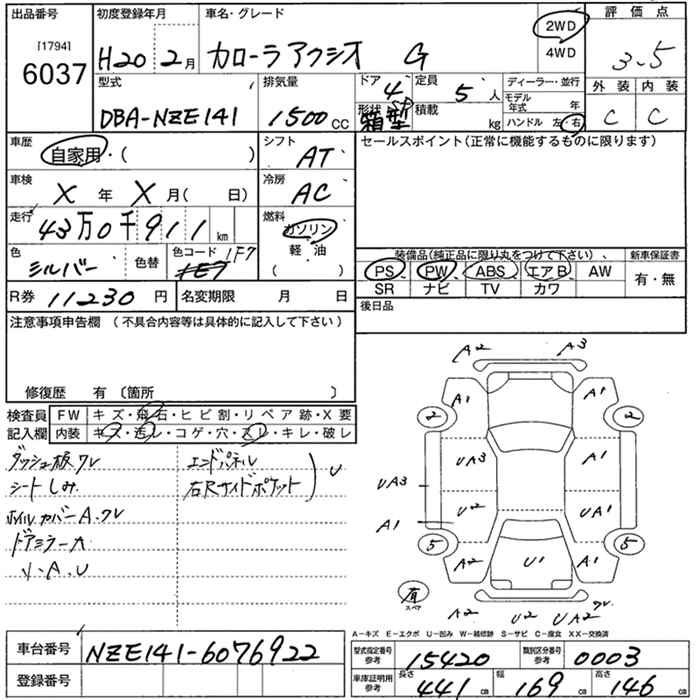 出品番号 初度登録年月 車名・グレード 2WD 4WD 評価点
[1794] 6037 H20 2月 カローラアクシオ G 3.5
型式 排気量 ドア 4 定員 5人 ディーラー・並行 外装 内装
DBA-NZE141 1500cc 形状 箱型 積載 kg モデル年式 年 C C
ハンドル 左・右
車歴 自家用・( ) シフト AT セールスポイント(正常に機能するものに限ります)
車検 X 年 X 月( 日) 冷房 AC
走行 43万0千911km 燃料 ガソリン
軽・油
( )
色 シルバー 色替 色コード 1F7 装備品(純正品に限り丸をつけて下さい) 新車保証書
PS PW ABS エアB AW 有・無
SR ナビ TV カワ
R券 11230円 名変期限 月 日 後日品
注意事項申告欄 (不具合内容等は具体的に記入して下さい)
修復歴 有 〔箇所 〕
検査員 FW キズ・飛石・ヒビ割・リペア跡・X要
記入欄 内装 キズ・汚レ・コゲ・穴・スレ・キレ・破レ
ダッシュ板ワレ エンドパネル U
シートしみ 右Rサイドポケット
ホイルカバーA.ワレ
ドアミラー大
小.A.U
A2 A3
A1 A1
2 2
UA3 A1
UA3
U2 UA1
A1
5 5
A2 U1 A1
有 スペア
A2 U2 UA2 ワレ
A-キズ E-エクボ U-凹み W-補修跡 S-サビ C-腐食 XX-交換済
車台番号 NZE141-6076922 型式指定番号 参考 15420 類別区分番号 参考 0003
登録番号 車庫証明用 参考 長さ 441cm 幅 169cm 高さ 146cm